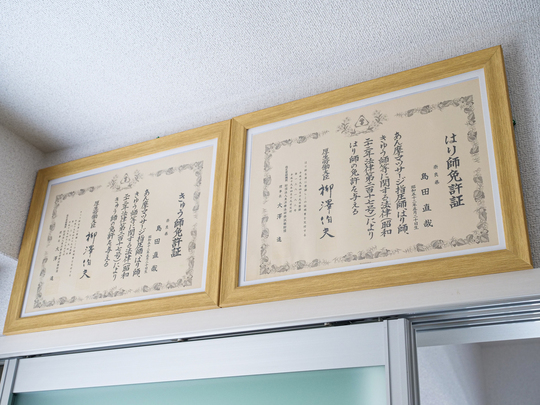 はり師免許証
奈良県
島田直哉
あん摩マツサージ指圧師、はり師、
きゆう師等に関する法律(昭和
二十二年法律第二百十七号)により
はり師の免許を与える
厚生労働大臣 柳澤伯夫
きゆう師免許証
島田直哉
あん摩マツサージ指圧師、はり師、
きゆう師等に関する法律(昭和
二十二年法律第二百十七号)により
きゆう師の免許を与える
厚生労働大臣 柳澤伯夫